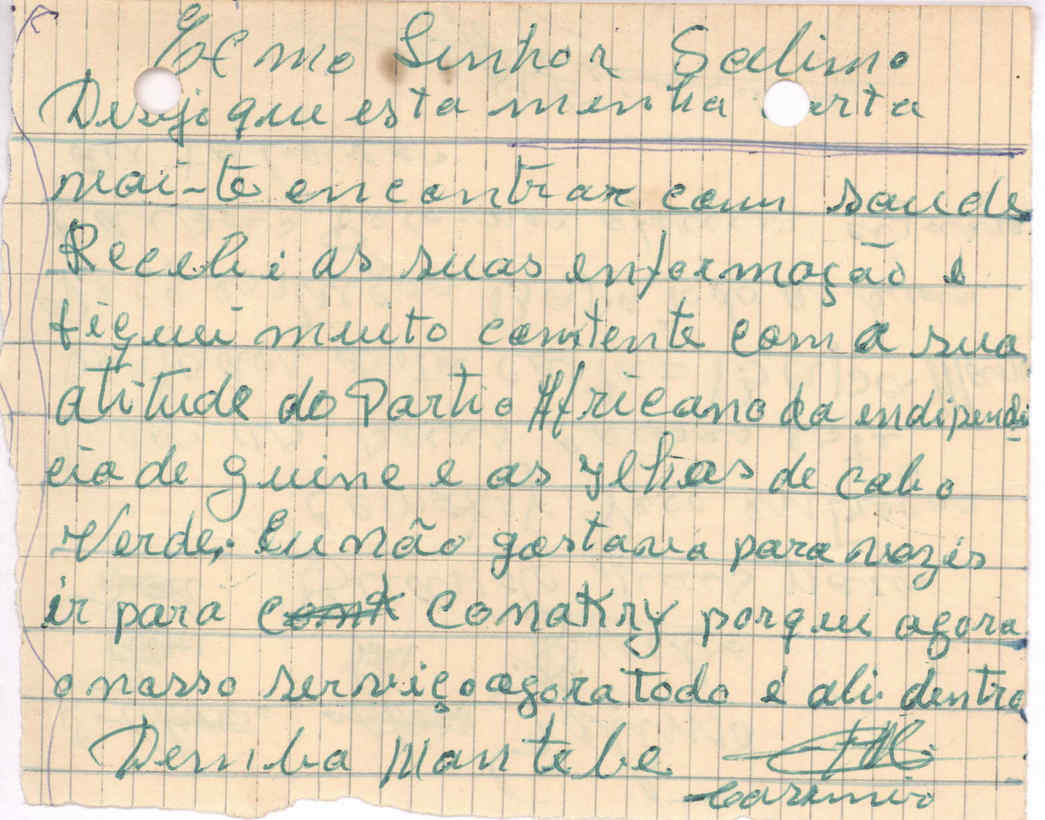 Exmo Senhor Salimo
Deseji que esta minha arta
vai-te encontrar com saude
Recebi as suas enformação e
fiquei muito contente com a sua
atitude do Partio Africano da endipendê
cia de guine e as ylhas de cabo
Verde, Eu não gostava para vozês
ir para Conakry porque agora
o nosso serviço agora todo é ali dentro
Demba Mantebe